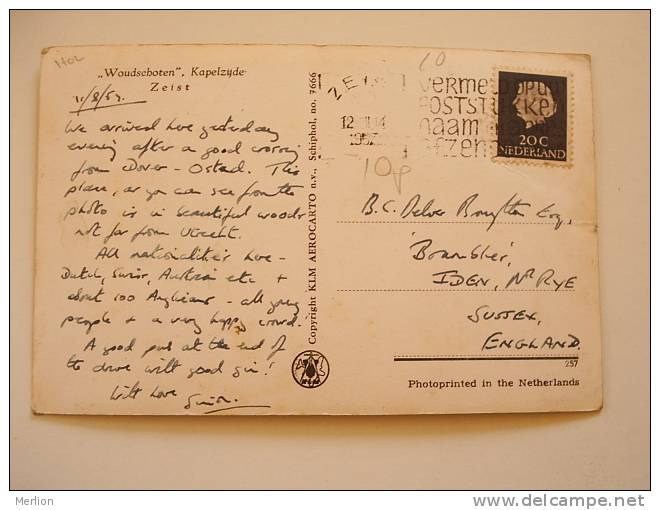 Hol
„Woudschoten”, Kapelzijde
Zeist
We arrived here yesterday
evening after a good crossing
from Dover - Ostend. This
place, as you can see from the
photo is in beautiful woods
not far from Utrecht.
All nationalities here -
Dutch, Swiss, Austrian etc +
about 100 Anglians - all young
people + a very happy crowd.
A good pub at the end of
the drive with good gin!
With love
Copyright KLM AEROCARTO n.v., Schiphol, no. 7666
10
ZE
12
195
10p
POSTSTUKKE
naam
afzen
20C
NEDERLAND
B.C. Esq.,
'Brambles',
IDEN, NR RYE
SUSSEX,
ENGLAND.
257
Photoprinted in the Netherlands
Merlion
www.delcampe.net